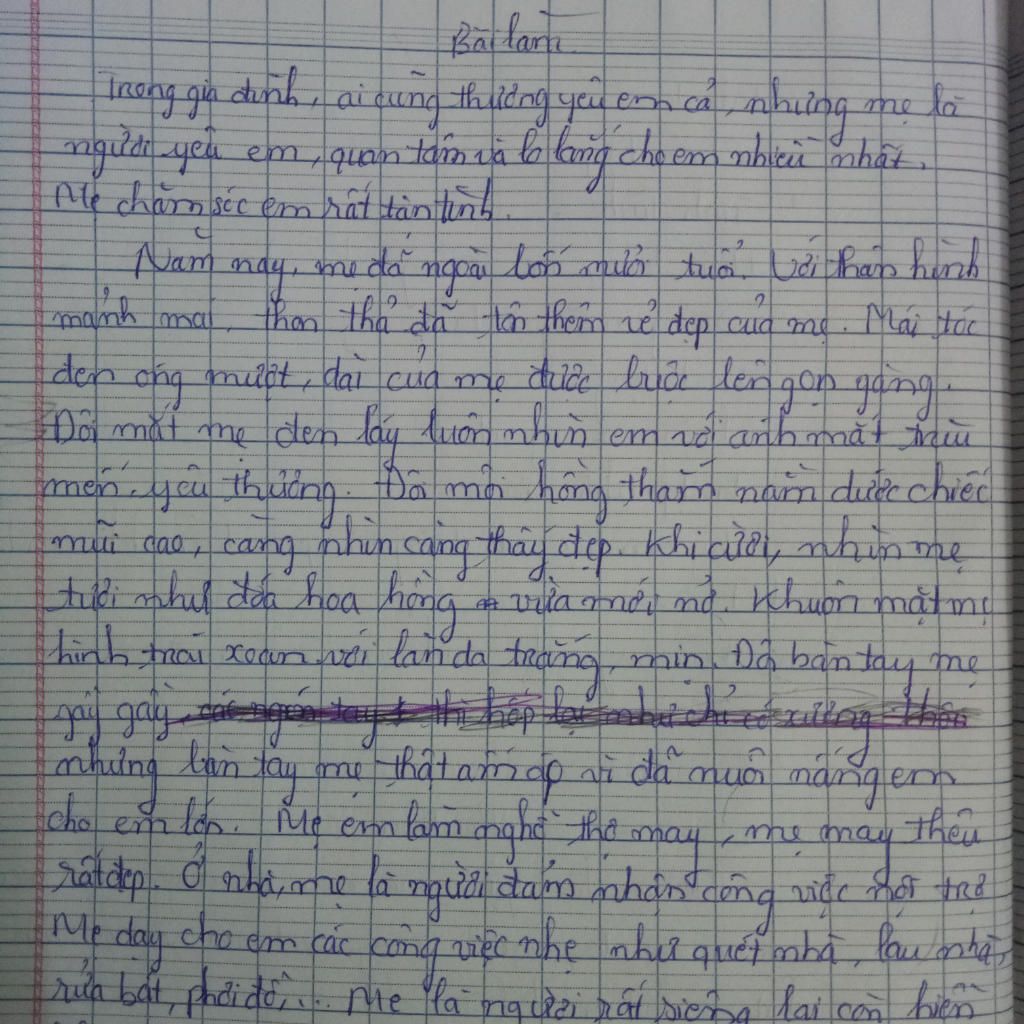 Bài làm
Trong gia đình, ai cũng thương yêu em cả, nhưng mẹ là
người yêu em, quan tâm và lo lắng cho em nhiều nhất.
Mẹ chăm sóc em rất tận tình.
Năm nay, mẹ đã ngoài bốn mươi tuổi. Với thân hình
mảnh mai, thon thả đã tôn thêm vẻ đẹp của mẹ. Mái tóc
đen óng mượt, dài của mẹ được buộc lên gọn gàng.
Đôi mắt mẹ đen láy luôn nhìn em với ánh mắt trìu
mến, yêu thương. Đôi môi hồng thắm nằm dưới chiếc
mũi cao, càng nhìn càng thấy đẹp. Khi cười, nhìn mẹ
tươi như đoá hoa hồng vừa mới nở. Khuôn mặt mẹ
hình trái xoan với làn da trắng, mịn. Đôi bàn tay mẹ
gầy gầy, các ngón tay thì hóp lại như chỉ có xương
nhưng bàn tay mẹ thật ấm áp vì đã nuôi nấng em
cho em lớn. Mẹ em làm nghề thợ may, mẹ may thêu
rất đẹp. Ở nhà, mẹ là người đảm nhận công việc nội trợ
Mẹ dạy cho em các công việc nhẹ như quét nhà, lau nhà,
rửa bát, phơi đồ,... Mẹ là người rất siêng lại còn hiền